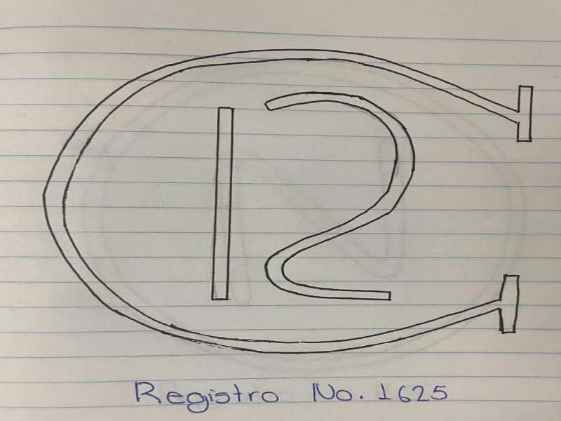 C
12
Registro No. 1625